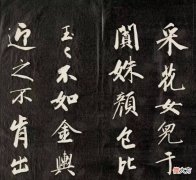 采花女兒于
闐姝顏色比
玉玉不如金輿
近之不肯出